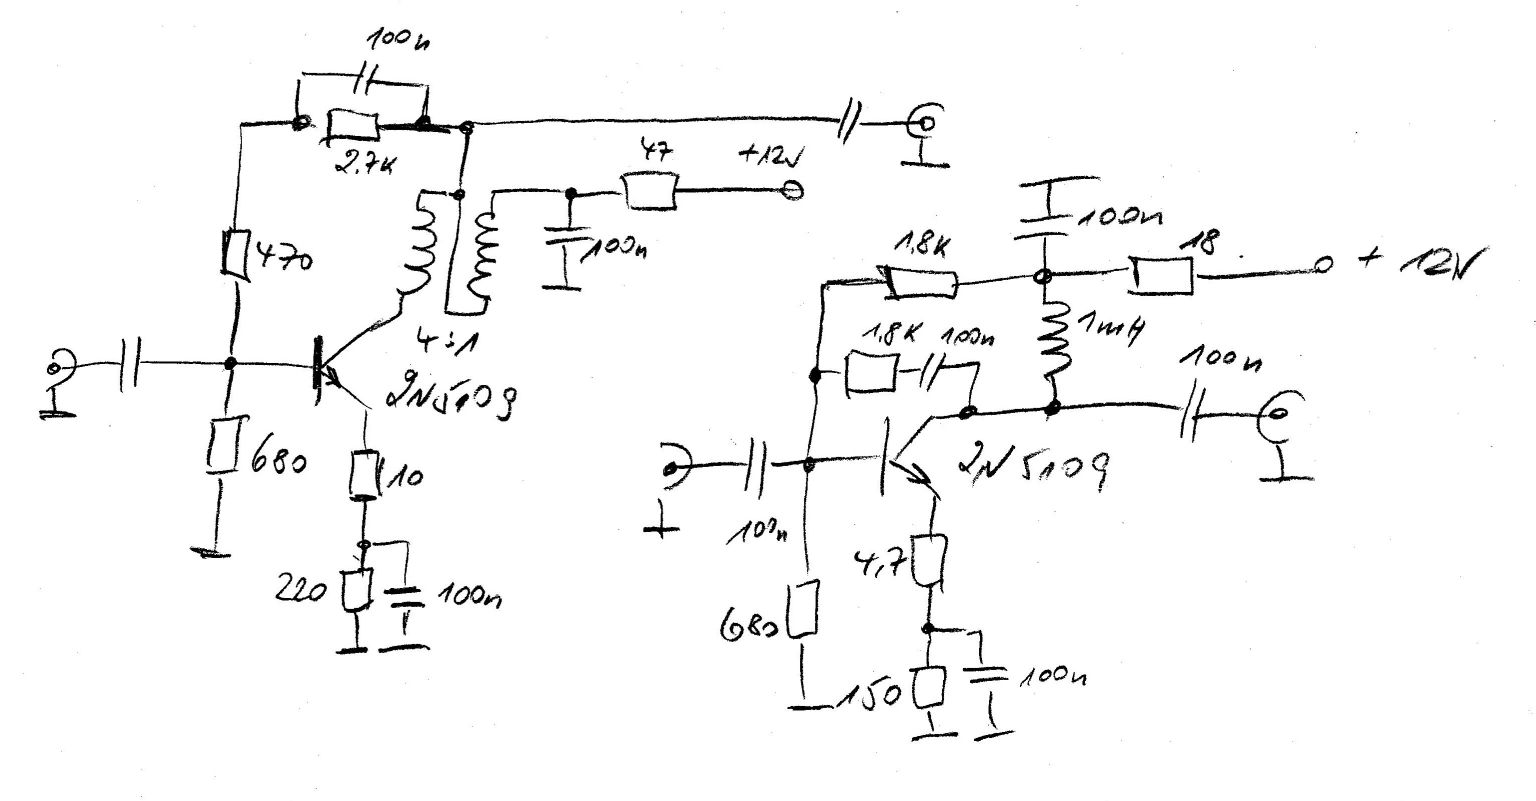 100n
2,7K
47
+12V
470
100n
4:1
2N5109
680
10
220
100n
100n
1,8K
18
+ 12V
1,8K
100n
1mH
100n
2N5109
100n
4,7
680
150
100n